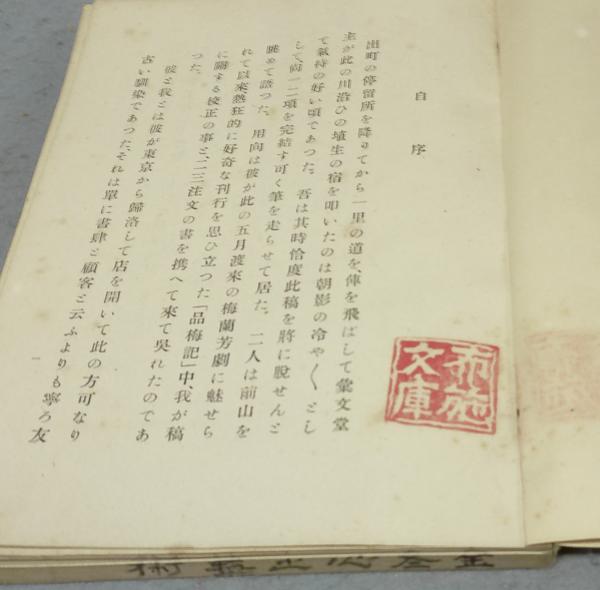 自序
出町の停留所を降りてから一里の道を、俥を飛ばして彙文堂
主が此の川沿ひの埴生の宿を叩いたのは朝影の冷やくとし
て氣持の好い頃であつた。吾は其時恰度此稿を將に脫せんと
して、尙一二項を完結す可く筆を走らせて居た。二人は前山を
眺めて語つた。用向は彼が此の五月渡來の梅蘭芳劇に魅せら
れて以來熱狂的に好奇な刊行を思ひ立つた「品梅記」中、我が稿
に關する校正の事と、二三注文の書を携へて來て吳れたのであ
つた。
彼と我とは彼が東京から歸洛して店を開いて此の方可なり
古い馴染であつた、それは單に書肆と顧客と云ふよりも寧ろ友
布施
文庫